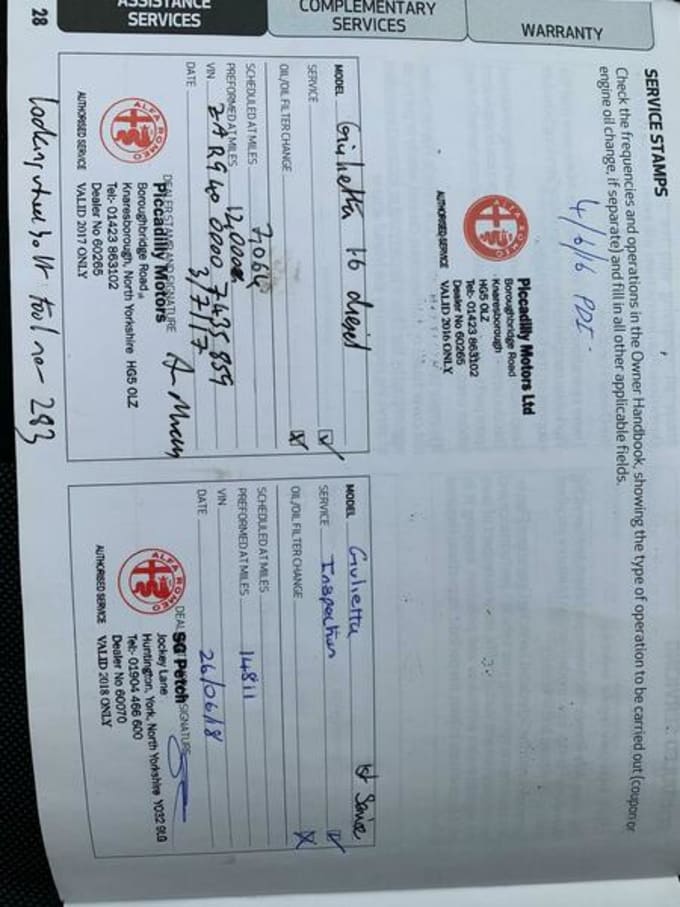 ASSISTANCE SERVICES
COMPLEMENTARY SERVICES
WARRANTY
SERVICE STAMPS
Check the frequencies and operations in the Owner Handbook, showing the type of operation to be carried out (coupon or
engine oil change, if separate) and fill in all other applicable fields.
4/6/16 PDI.
ALFA ROMEO
AUTHORISED SERVICE
Piccadilly Motors Ltd
Boroughbridge Road
Knaresborough
HG5 0LZ
Tel:- 01423 863102
Dealer No 60265
VALID 2016 ONLY
MODEL Giulietta 1.6 diesel
SERVICE
OIL/OIL FILTER CHANGE
SCHEDULED AT MILES 7,064
PREFORMED AT MILES 12,000
VIN ZAR940 0000 7435 859
DATE 3/7/17
DEALER STAMP AND SIGNATURE
ALFA ROMEO
AUTHORISED SERVICE
Piccadilly Motors
Boroughbridge Road
Knaresborough, North Yorkshire HG5 0LZ
Tel:- 01423 863102
Dealer No 60265
VALID 2017 ONLY
MODEL Giulietta 1st Service
SERVICE Inspection
OIL/OIL FILTER CHANGE
SCHEDULED AT MILES
PREFORMED AT MILES 14811
VIN
DATE 26/06/18
SIGNATURE
ALFA ROMEO
AUTHORISED SERVICE
SG Petch
Jockey Lane
Huntington, York, North Yorkshire YO32 9LG
Tel:- 01904 466 600
Dealer No 60070
VALID 2018 ONLY
locking wheel bolt tool no - 283
28